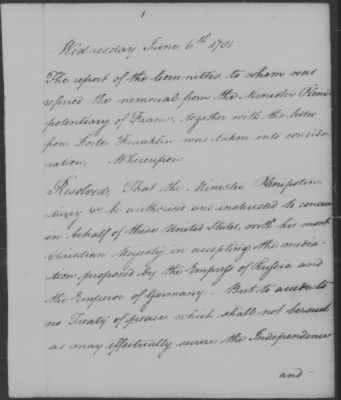 Wednesday June 6th 1781
The report of the Committee to whom was
refered the memorial from the Minister Pleni
potentiary of France, together with the letter
from Doctor Franklin was taken into conside
ration, Whereupon
Resolved, That the Minister Plenipoten
&c be authorised and instructed to concur
in behalf of these United States, with his most
Christian Majesty in accepting the media
tion proposed by the Empress of Russia and
the Emperor of Germany — But to accede to
no Treaty of peace which shall not be such
as may effectually secure the Independence
and —